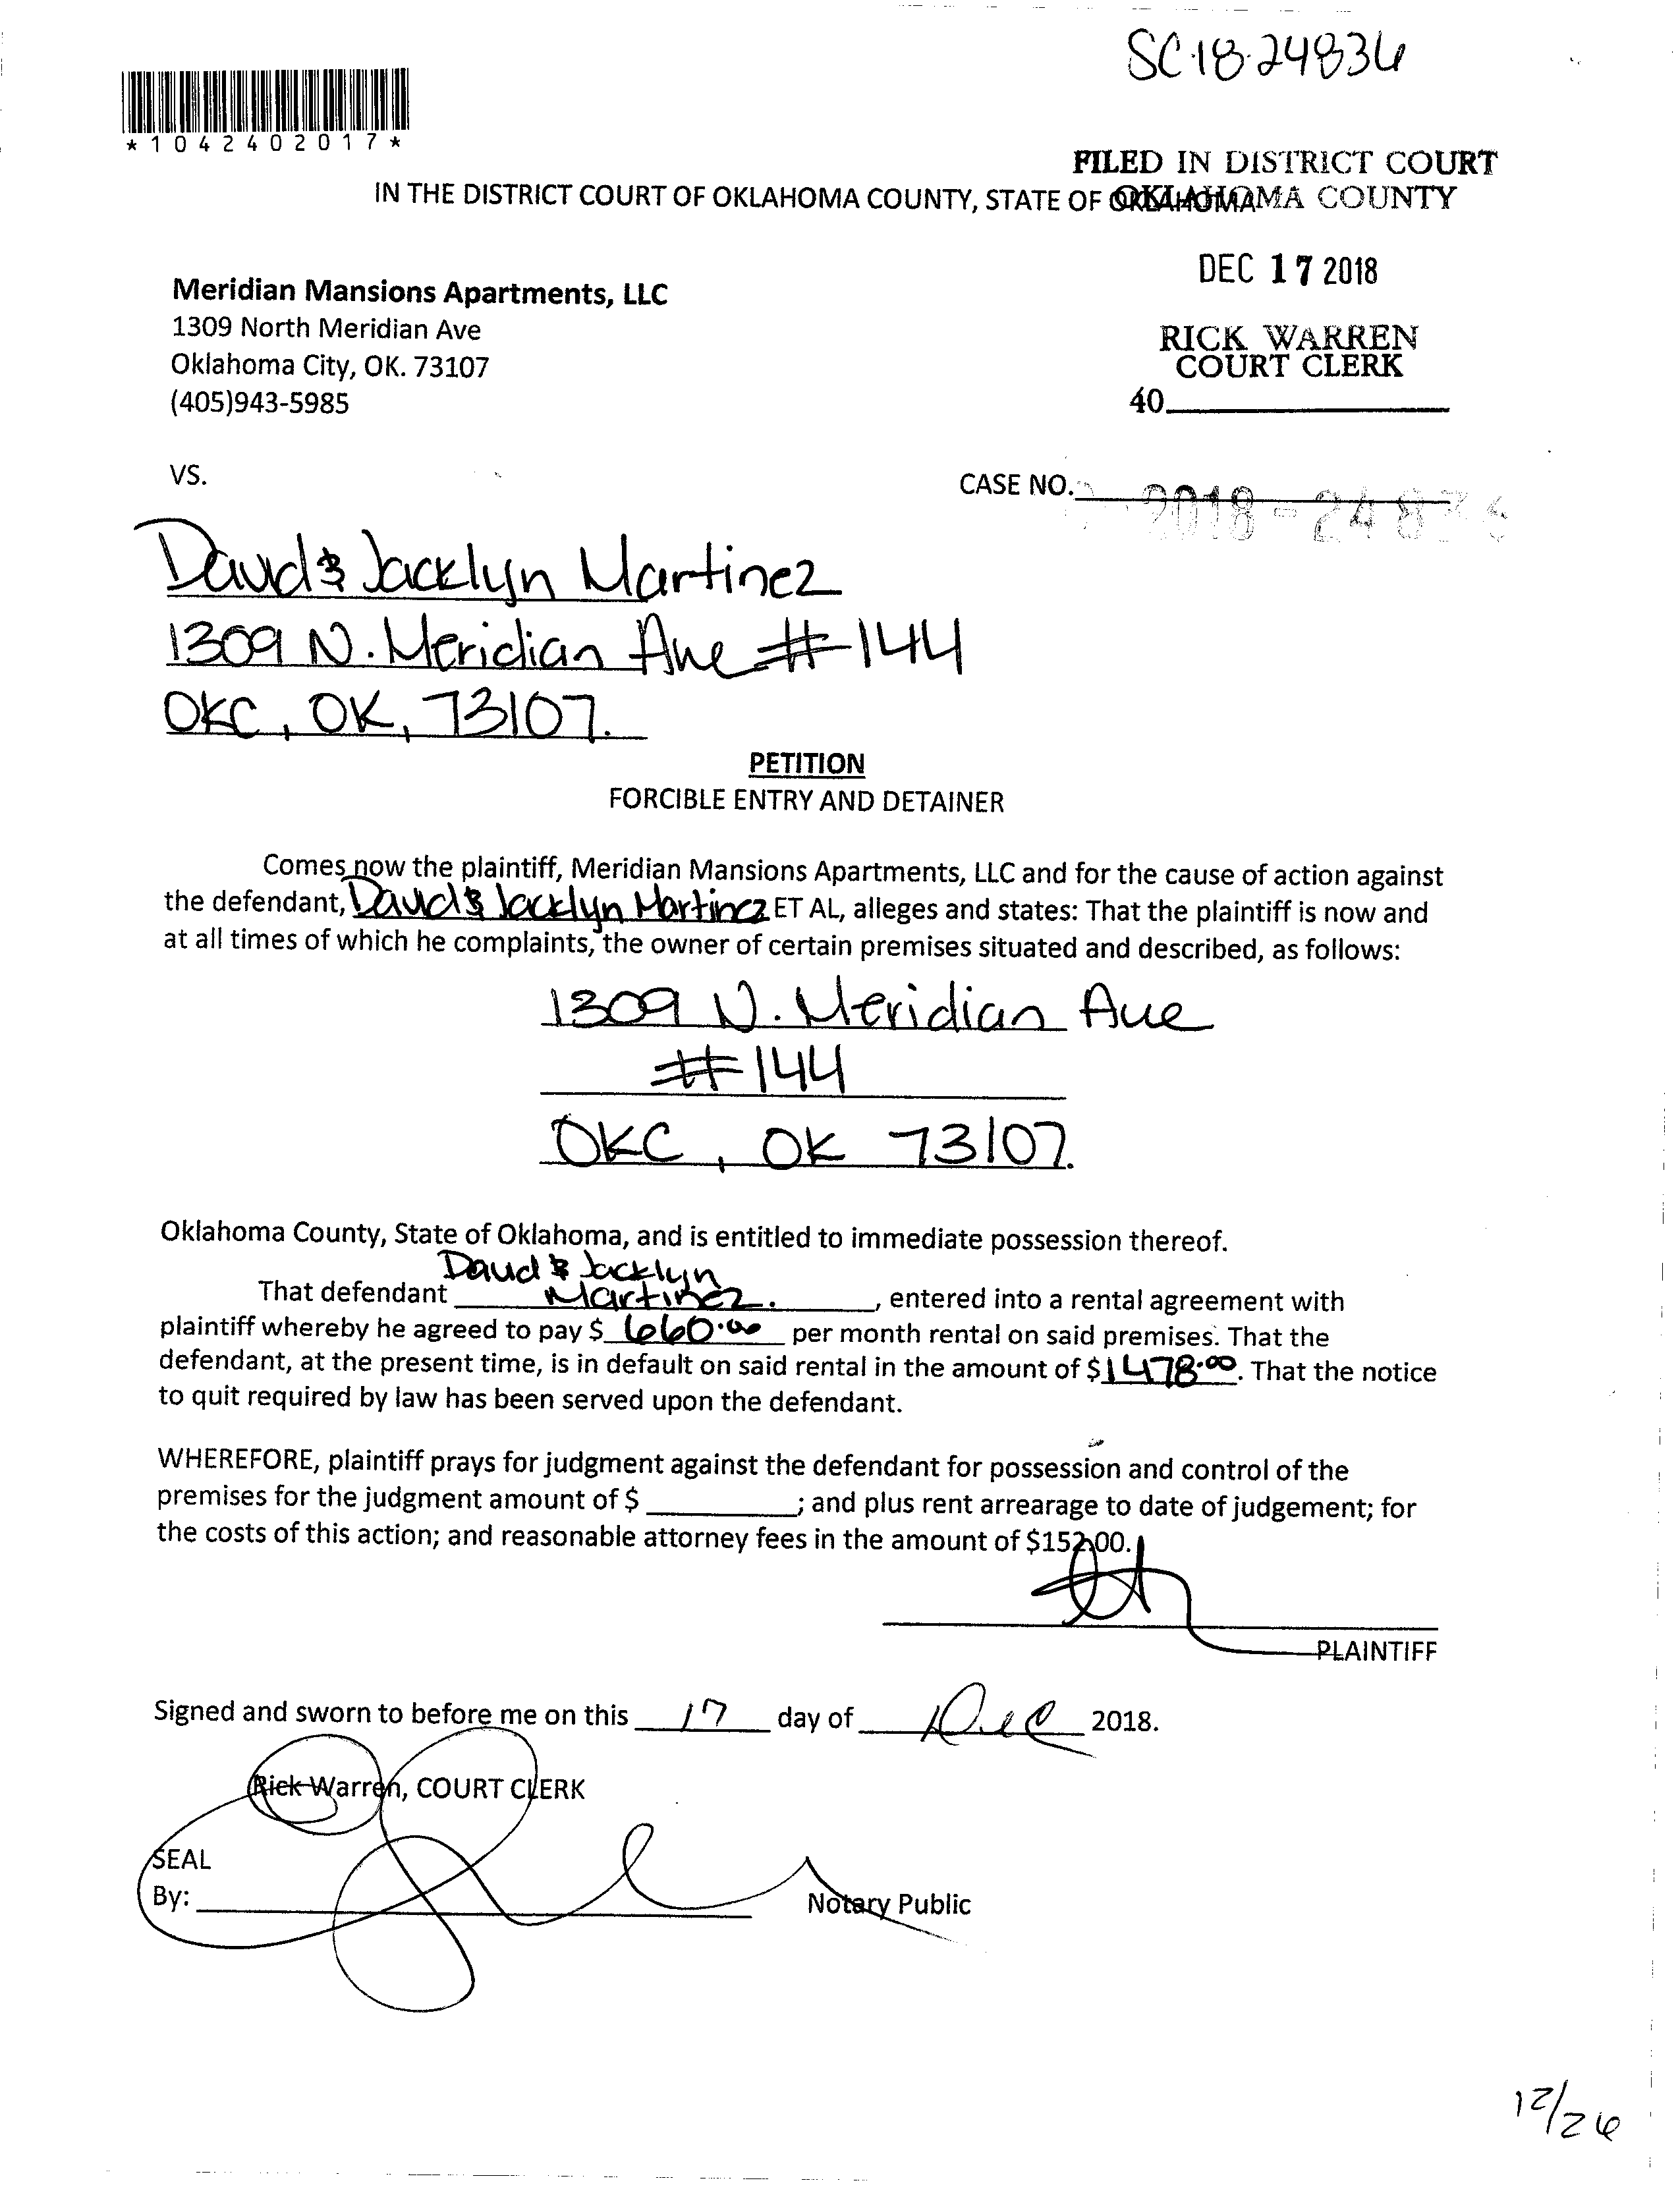 SC-18-24836
*1042402017*
FILED IN DISTRICT COURT
OKLAHOMA COUNTY
IN THE DISTRICT COURT OF OKLAHOMA COUNTY, STATE OF OKLAHOMA
DEC 17 2018
Meridian Mansions Apartments, LLC
1309 North Meridian Ave
Oklahoma City, OK. 73107
(405)943-5985
RICK WARREN
COURT CLERK
40
VS.
CASE NO. 2018-24836
David & Jacklyn Martinez
1309 N. Meridian Ave #144
OKC, OK, 73107.
PETITION
FORCIBLE ENTRY AND DETAINER
Comes now the plaintiff, Meridian Mansions Apartments, LLC and for the cause of action against
the defendant, David & Jacklyn Martinez ET AL, alleges and states: That the plaintiff is now and
at all times of which he complaints, the owner of certain premises situated and described, as follows:
1309 N. Meridian Ave
#144
OKC, OK 73107.
Oklahoma County, State of Oklahoma, and is entitled to immediate possession thereof.
David & Jacklyn
That defendant Martinez. , entered into a rental agreement with
plaintiff whereby he agreed to pay $ 660.00 per month rental on said premises. That the
defendant, at the present time, is in default on said rental in the amount of $1478.00. That the notice
to quit required by law has been served upon the defendant.
WHEREFORE, plaintiff prays for judgment against the defendant for possession and control of the
premises for the judgment amount of $ ; and plus rent arrearage to date of judgement; for
the costs of this action; and reasonable attorney fees in the amount of $152.00.
PLAINTIFF
Signed and sworn to before me on this 17 day of Dec 2018.
Rick Warren, COURT CLERK
SEAL
By: Notary Public
12/26